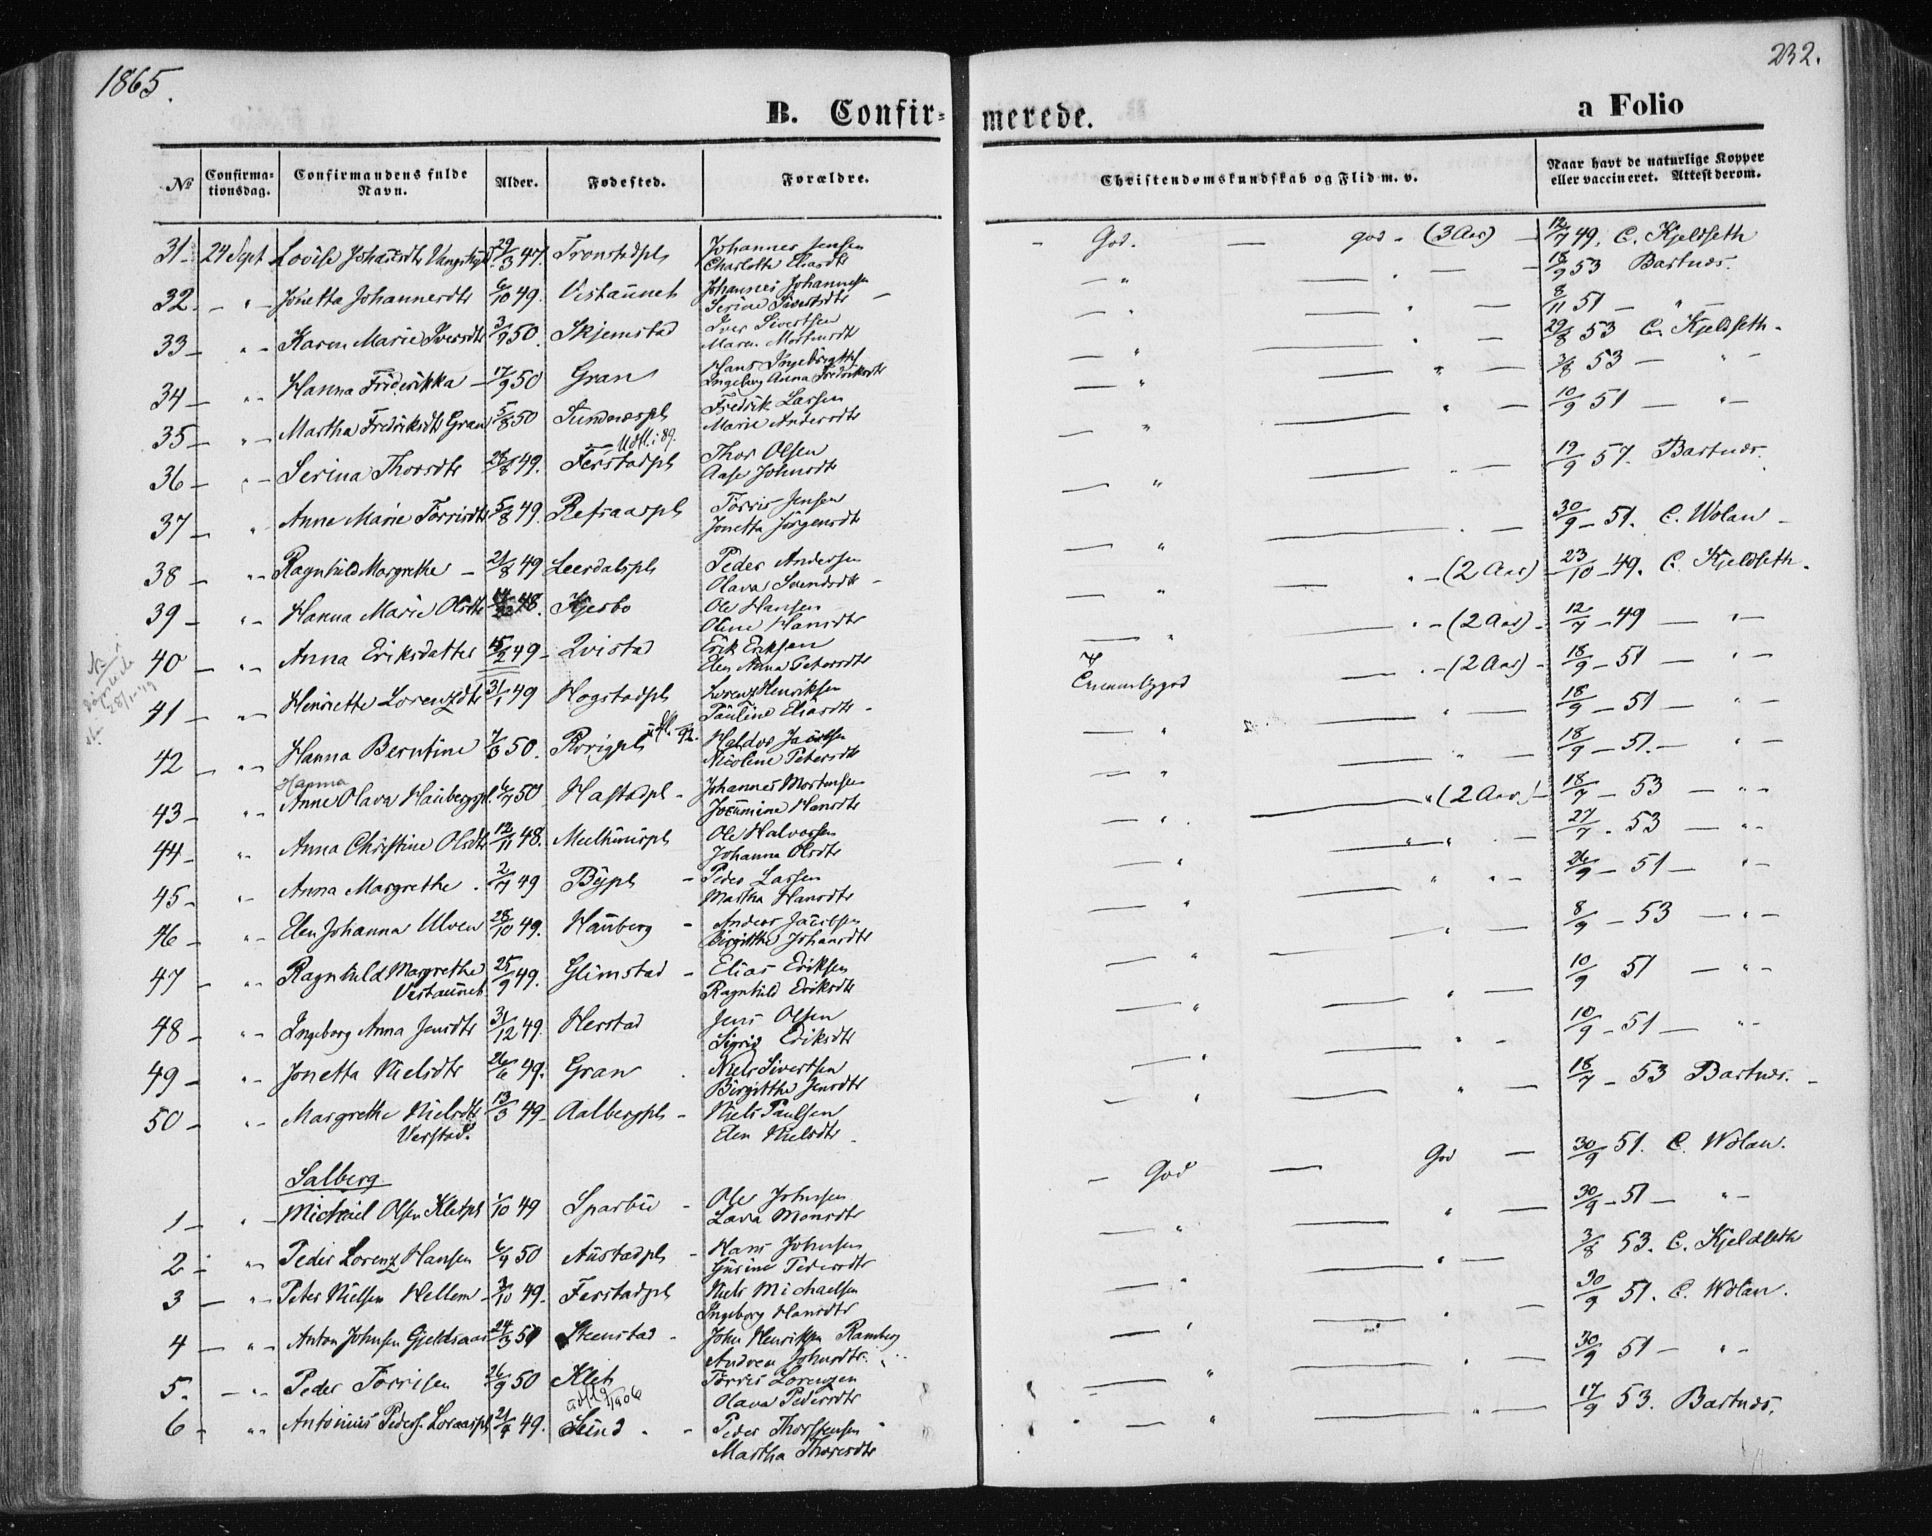 1865.
232.
B. Confir-
merede.
a Folio
No
Confirma-
tionsdag.
Confirmandens fulde
Navn.
Alder.
Fødested.
Forældre.
Christendomskundskab og Flid m. v.
Naar havt de naturlige Kopper
eller vaccineret. Attest derom.
31 24 Sept. Lovise 29/3 47. Tronstadpl. Johannes Jensen - God. — god - (3 Aar) - 12/7 49. C. Kjeldseth
Charlotte Eliasdtr
32 - " - Jonetta Johannesdtr 6/10 49. Vistaunet Johannes Johannesen - " - 18/9 53 Bartnes.
Serine Sivertsdtr
33 - " - Karen Marie Iversdtr 3/9 50. Skjemstad Iver Sivertsen - " - 8/11 51 - " -
Maren Mortensdtr
34 - " - Hanna Friderikka - 17/9 50 Gran Hans Ingebrigtsen - " - 29/8 53 C. Kjeldseth.
Ingeborg Anna Fredriksdtr
35 - " - Martha Fredriksdtr Gran 5/8 50 Sundnespl. Fredrik Larsen - " - 3/8 53 - " -
Marie Andersdtr
36 - " - Serina Thorsdtr 28/8 49. Ferstadpl Thor Olsen - " - 10/9 51 - " -
Udfl. i 89.
Aase Johnsdtr
37 - " Anne Marie Torrisdtr 5/8 49. Refsaaspl Torris Jensen - " - 19/9 57. Bartnes.
Jonetta Jørgensdtr
38 - " - Ragnhild Margrethe - 21/8 49 Leersdalspl Peder Andersen - " - 30/9 - 51. C. Wolan -
Olava Svendsdtr -
39 - " - Hanna Marie Olsdtr 48. Kjesbo Ole Hansen - " - (2 Aar) - 23/10 - 49. C. Kjeldseth.
Oline Hansdtr
40 - " - Anna Eriksdatter 15/2 49 - Qvistad Erik Eriksen - " - (2 Aar) - 12/7 - 49 - " -
Elen Anna Petersdtr
41 - " - Henriette Lorenzdtr 31/1 49 Hogstadpl Lorenz Henriksen - (2 Aar) - 18/9 - 51 - " -
Pauline Eliasdtr -
42 - " - Hanna Berntine 7/3 50. Rorigpl Haldor - " - 18/9 - 51 - " -
Nicoline Petersdtr
43 - " - Anne Olava Haubergspl. 6/7 50 Hastadpl - Johannes Mortensen - " - 18/9 - 51. - " -
Hanna
Jocumine Hansdtr
44 - " - Anna Christine Olsdtr 12/11 48. Melhuuspl Ole Halvorsen - " (2 Aar) - 18/7 - 53 - " -
Johanna Olsdtr
45 - " - Anna Margrethe . 2/7 49 Bypl - Peder Larsen - " - 27/7 - 53 - " -
Martha Hansdtr
46 - " - Elen Johanna Ulven 28/10 49. Hauberg - Anders Jacobsen - " - 26/9 - 51 - " -
Birgitthe Johansdtr
47 - " - Ragnhild Margrethe 25/9 49. Glimstad - Elias Eriksen - " - 8/9 - 53 - " -
Vistaunet Ragnhild Eriksdtr
48 - " - Ingeborg Anna Jensdtr 31/12 49. Herstad Jens Olsen - " - 10/9 51 - " -
Sigrid Eriksdtr
49 - " - Jonetta Nielsdtr 26/6 49. Gran Niels Sivertsen - " - 10/9 - 51 - " -
Birgitthe Jensdtr
50 - " - Margrethe Nielsdtr 13/3 49 - Aalbergpl - Niels Paulsen - " - 18/7 - 53 Bartnes. -
Verstad. Elen Nielsdtr
Salberg
1 - " - Michael Olsen Kletpl 1/10 49 Sparbu - Ole Johnsen - God — God - 30/9 51. C. Wolan.
Lava Monsdtr
2 - " - Peder Lorenz Hansen 6/9 50 Austadpl - Hans Johnsen - " - 30/9 - 51 - " -
Gurine Pedersdtr
3 - " - Peter Nielsen Hellem - 3/10 49. Ferstadpl Niels Michaelsen - " - 3/8 53. C. Kjeldseth
Ingeborg Hansdtr
4 - " - Anton Johnsen 24/3 51 Steenstad - John Henriksen Ramberg - " - 30/9 51. C. Wolan.
Andrea Johnsdtr.
5. - " - Peder Torrisen 26/9 50 Klet Torris Lorenzen - " - 30/9 51 - " -
Olava Pedersdtr
6 - " - Antonius Peders. 21/9 49. Sund - Peder Thorstensen - " - 17/9 53. Bartnes.
Martha Thoresdtr